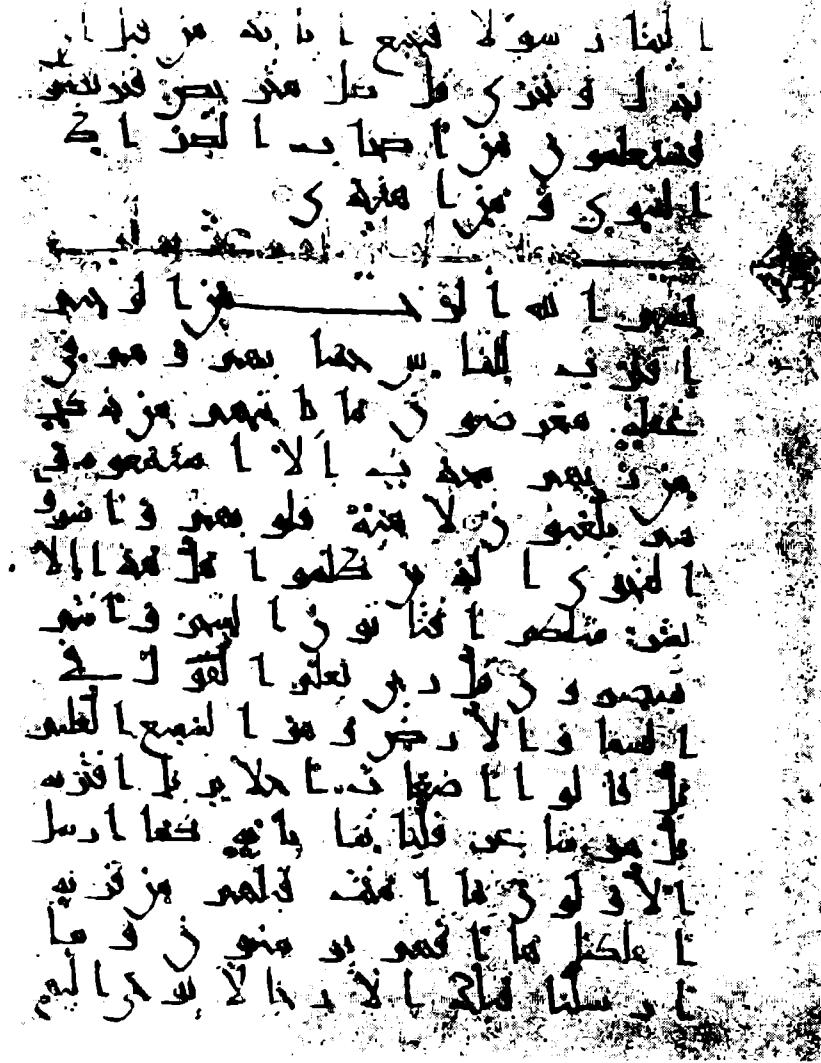 الينا رسولا فنتبع اياتك من قبل ان
نذل ونخزى قل كل متربص فتربصوا
فستعلمون من اصحاب الصراط
السوى ومن اهتدى
بسم الله الرحمن الرحيم
اقترب للناس حسابهم وهم في
غفلة معرضون ما ياتيهم من ذكر
من ربهم محدث الا استمعوه و
هم يلعبون لاهية قلوبهم واسروا
النجوى الذين ظلموا هل هذا الا
بشر مثلكم افتاتون السحر وانتم
تبصرون قل ربي يعلم القول في
السما والارض وهو السميع العليم
بل قالوا اضغاث احلام بل افتريه
بل هو شاعر فلياتنا باية كما ارسل
الاولون ما امنت قبلهم من قرية
اهلكنها افهم يومنون وما
ارسلنا قبلك الا رجالا نوحي اليهم